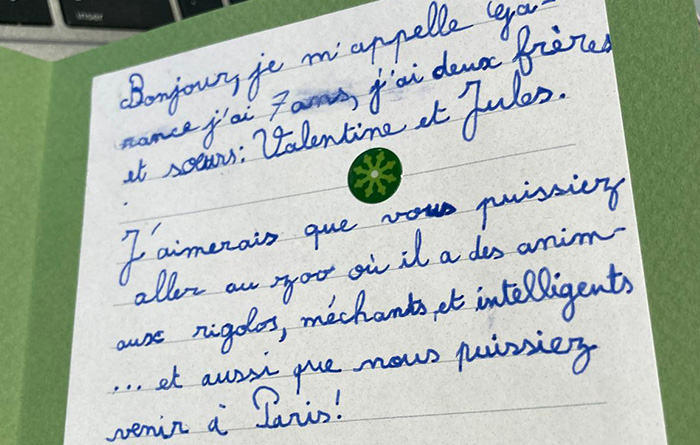 Bonjour, je m'appelle Ga-
rance j'ai 7 ans, j'ai deux frères
et sœurs: Valentine et Jules.
J'aimerais que vous puissiez
aller au zoo où il a des anim-
aux rigolos, méchants, et intelligents
... et aussi que nous puissiez
venir à Paris!